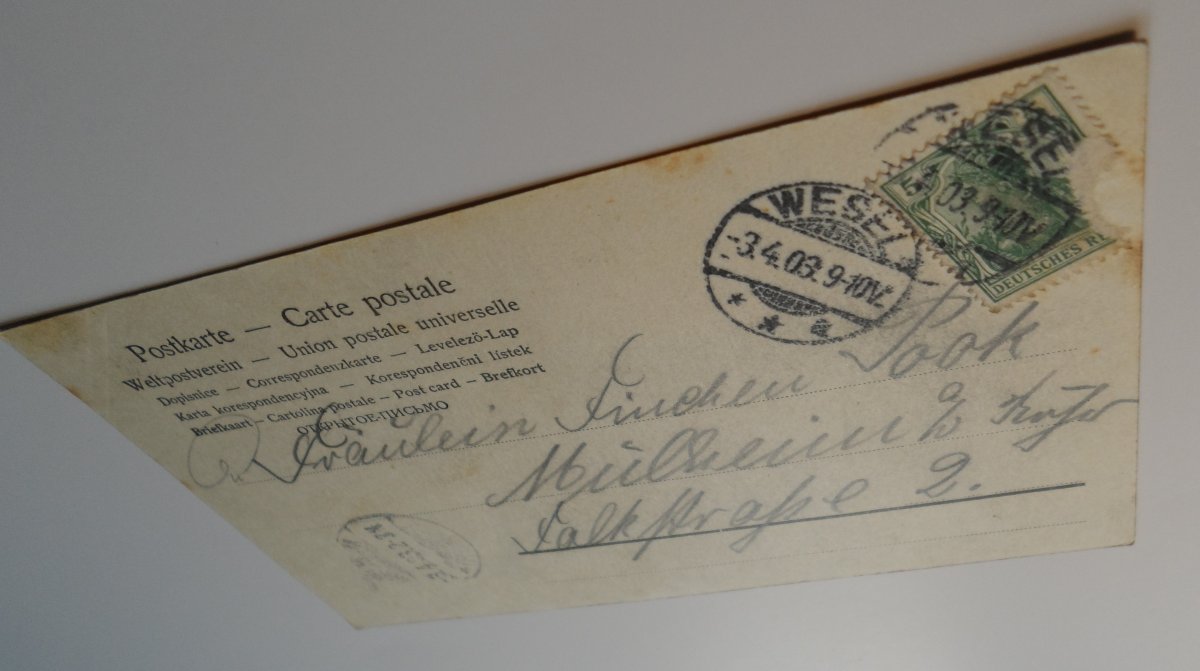 Postkarte — Carte postale
Weltpostverein — Union postale universelle
Dopisnice — Correspondenzkarte — Levelező-Lap
Karta korespondencyjna — Korespondenční lístek
Briefkaart — Cartolina postale — Post card — Brefkort
ОТКРЫТОЕ ПИСЬМО
WESEL
-3.4.03.9-10V.
WESEL
3. 03.9-10V
DEUTSCHES RE
An Fräulein Finchen Pook
Mülheim a/d Ruhr
Falkstraße 2.